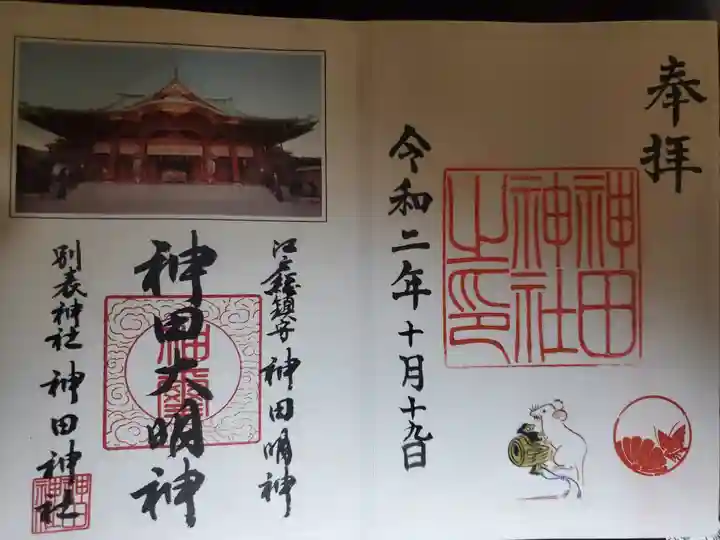 奉拝
神田
神社
之印
令和二年十月十九日
江戸総鎮守 神田明神
神田大明神
別表神社 神田神社
神田
神社